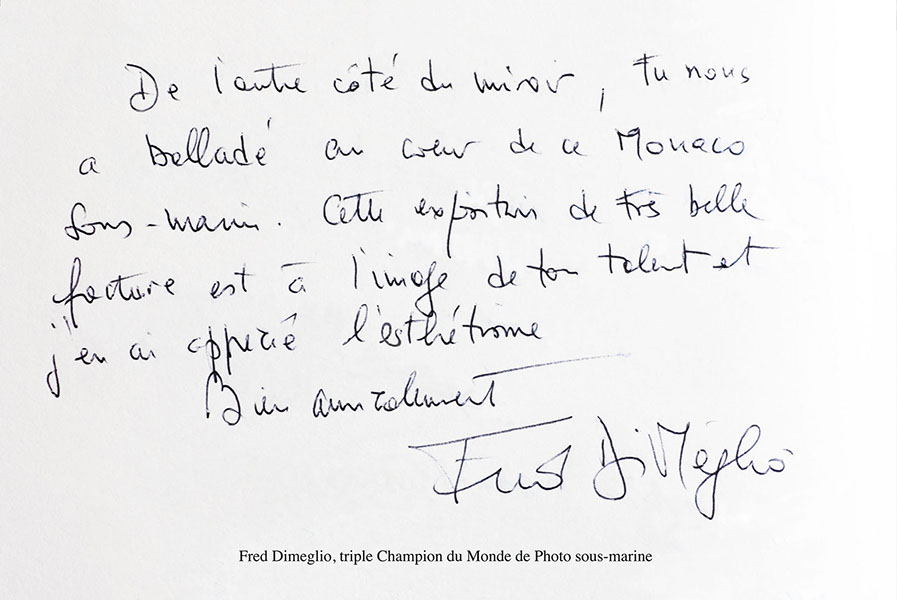 De l'autre côté du miroir, tu nous
a balladé au cœur de ce Monaco
sous-marin. Cette exposition de très belle
facture est à l'image de ton talent et
j'en ai apprécié l'esthétisme
Bien amicalement
Fred Di Méglio
Fred Dimeglio, triple Champion du Monde de Photo sous-marine